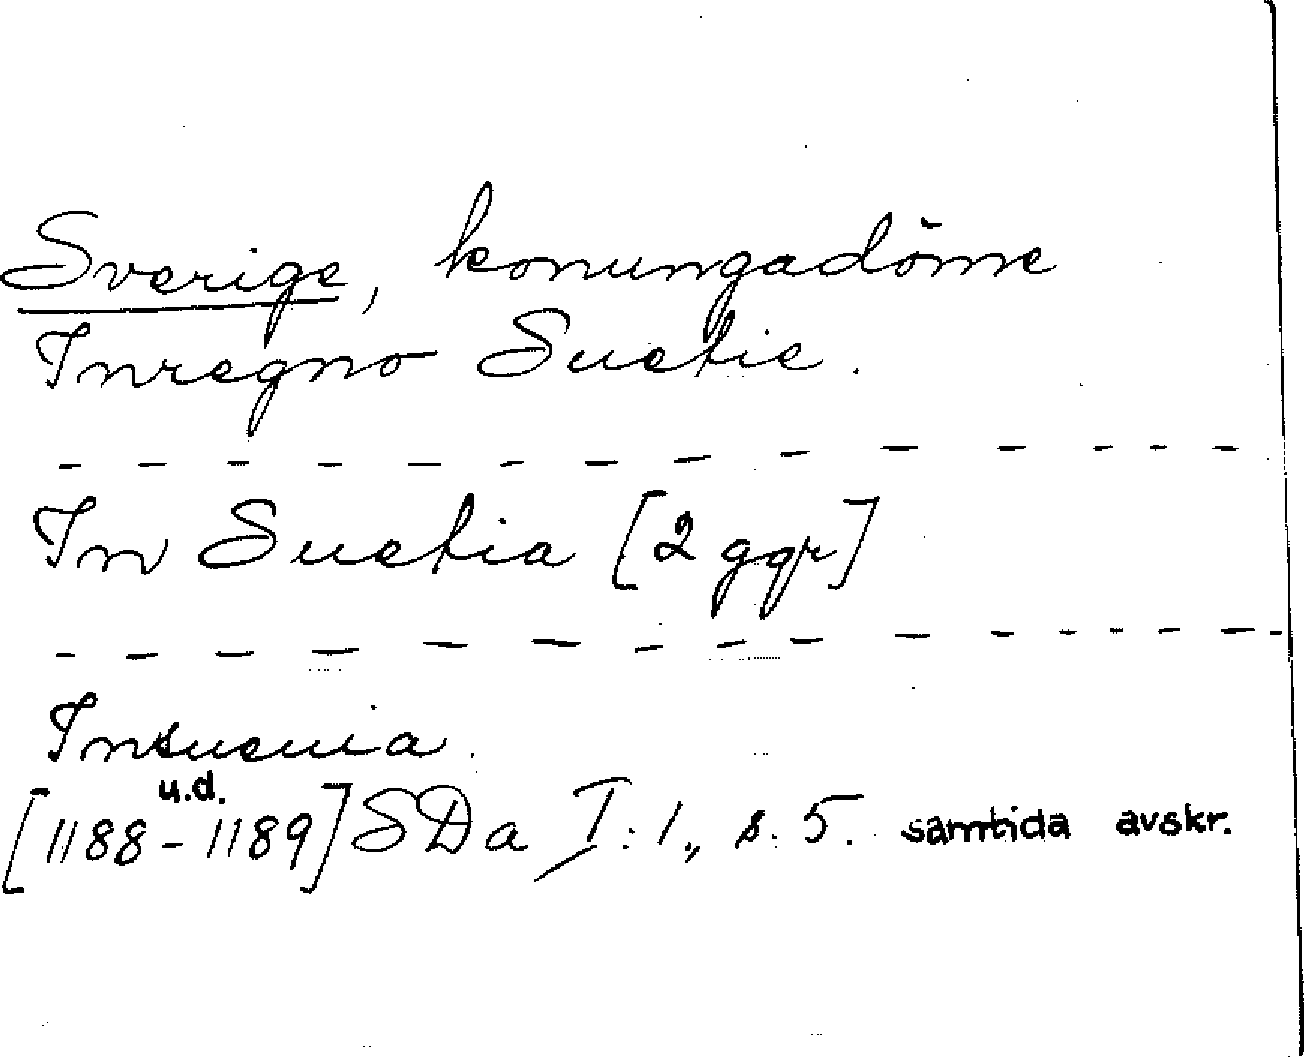 Sverige, konungadöme
Inregno Suetie.
- - - - - - - - - - - - - -
In Suetia [2 ggr]
- - - - - - - - - - - - - - -
Insueuia.
u.d.
[1188-1189] SDa I:1., s. 5. samtida avskr.